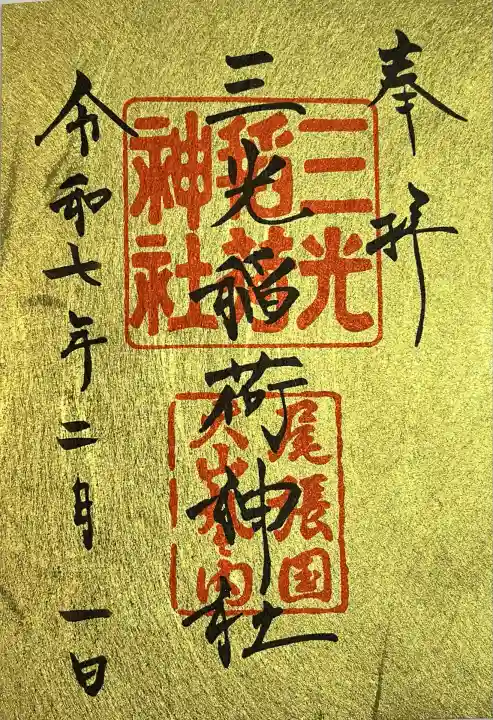 奉拝
三光稲荷神社
三光稲荷神社
尾張国
犬山城内
令和七年二月一日